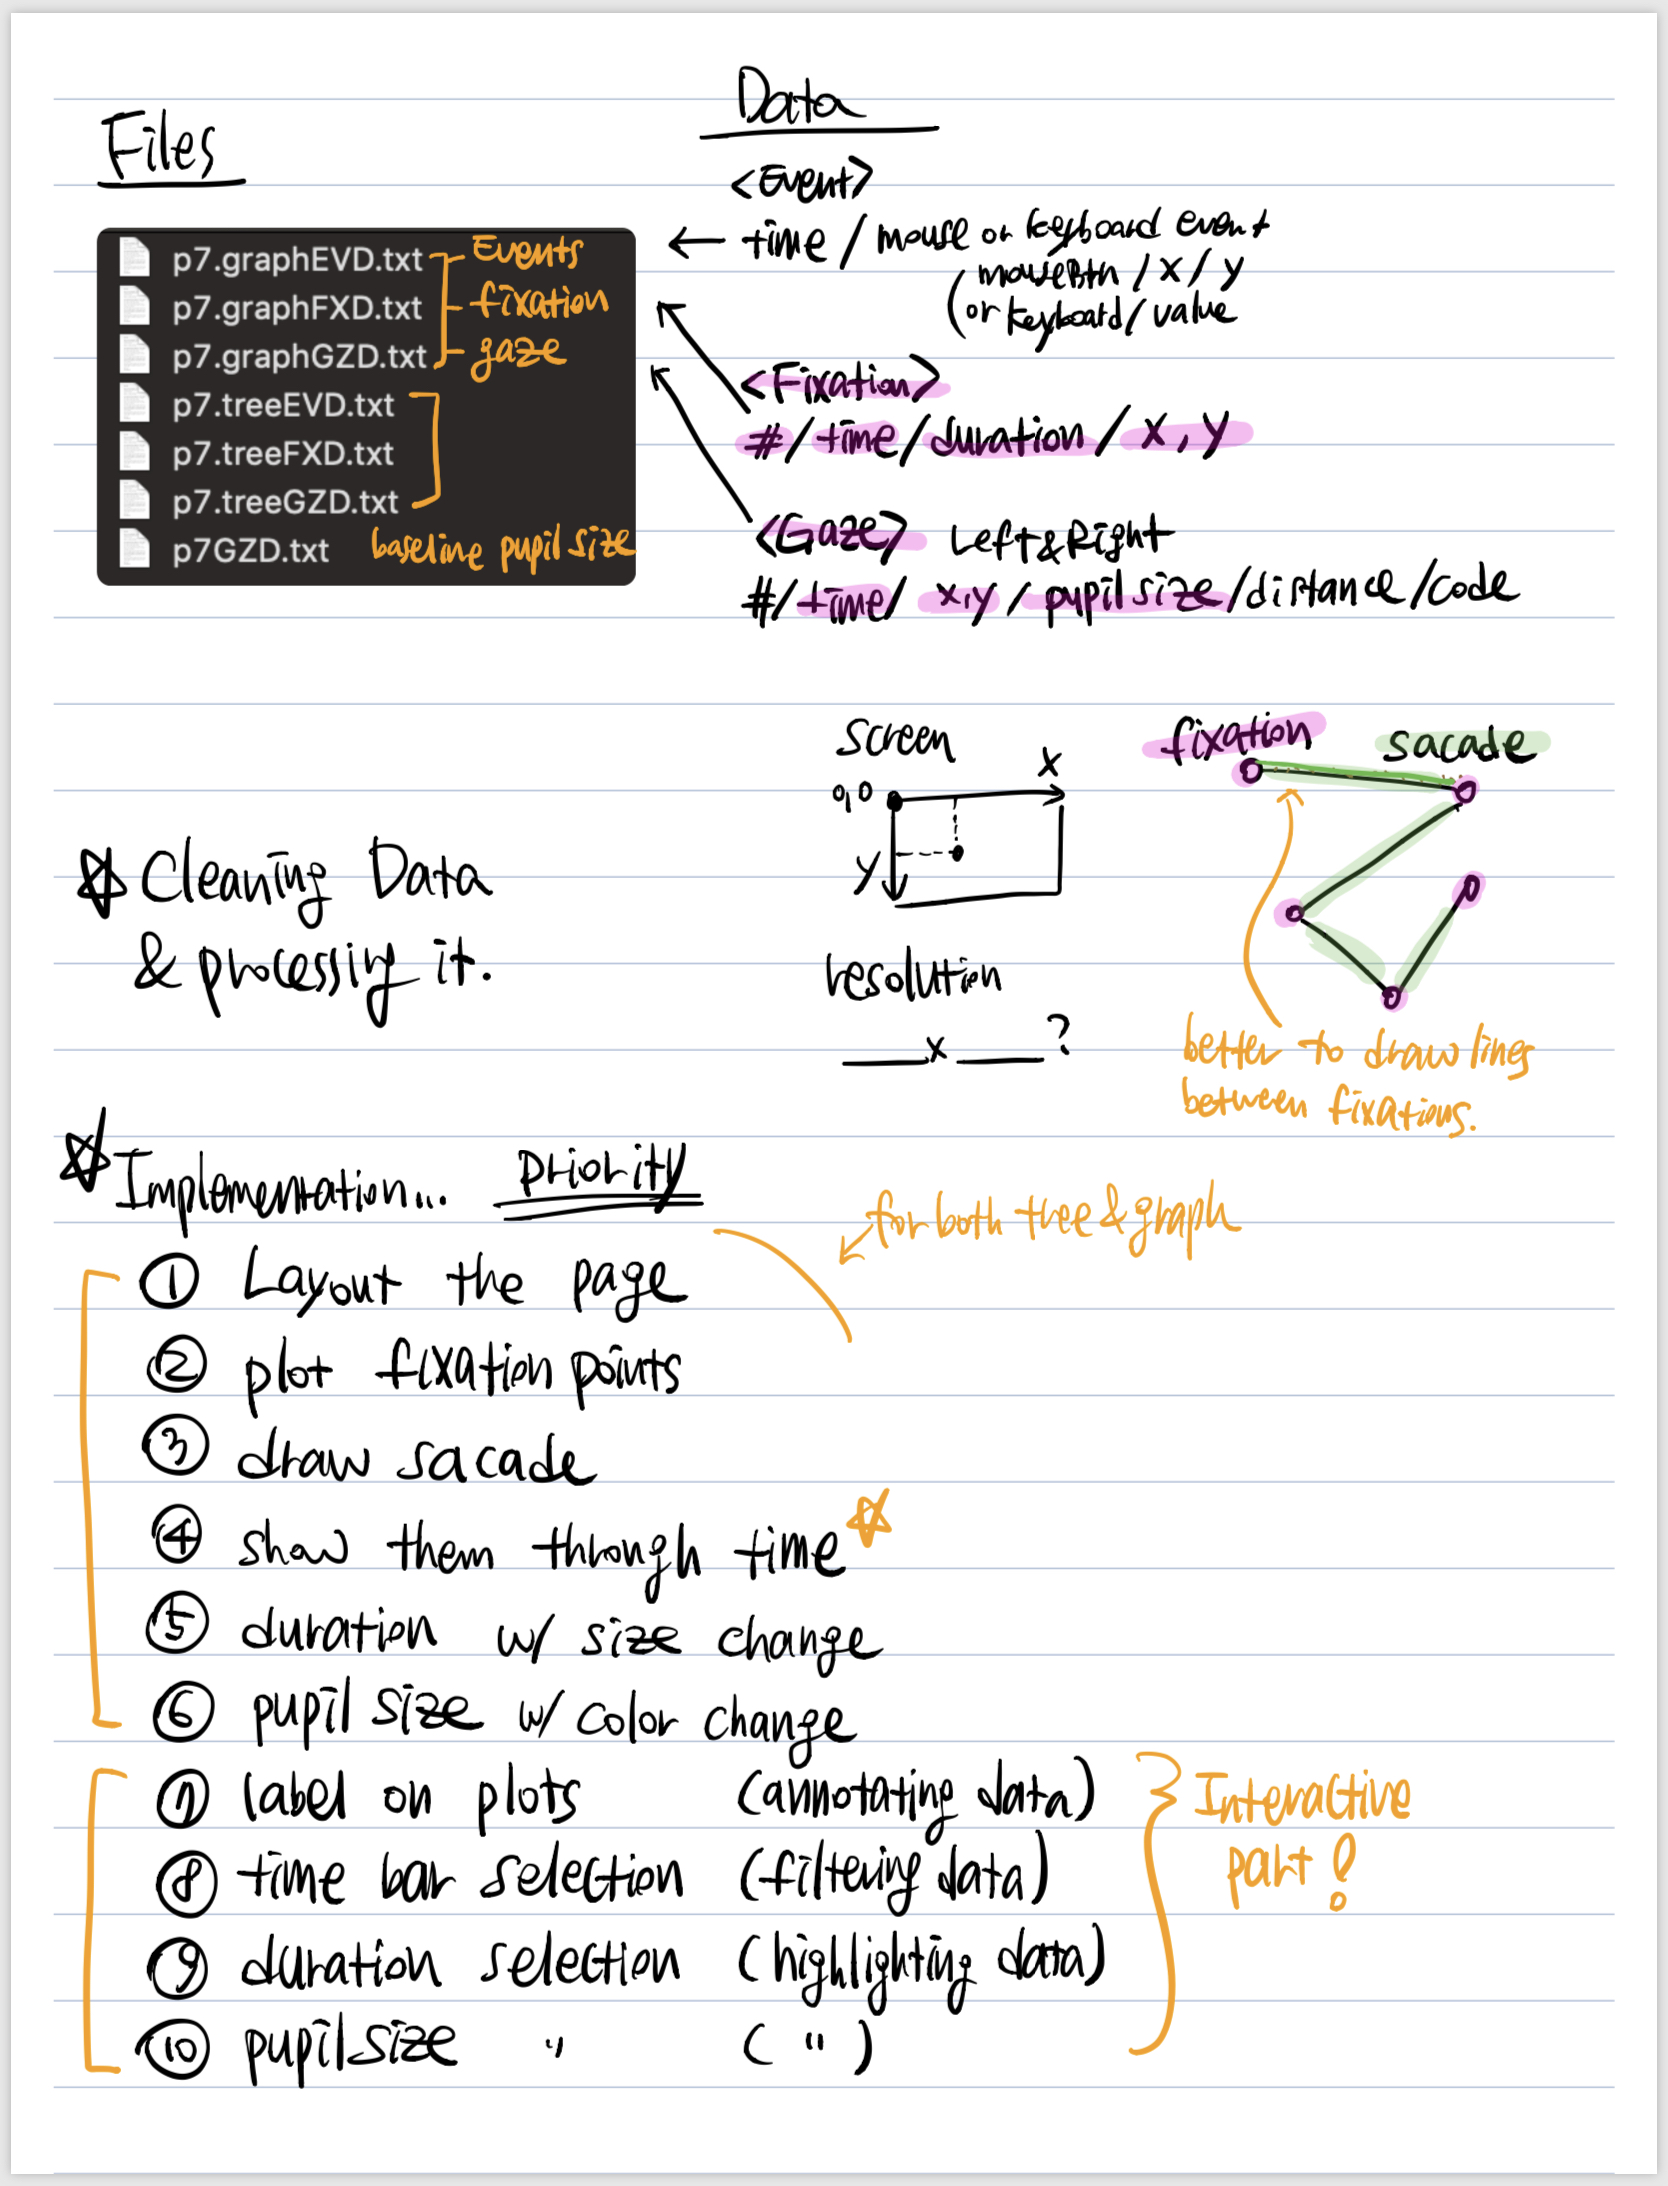 Files
p7.graphEVD.txt Events
p7.graphFXD.txt fixation
p7.graphGZD.txt gaze
p7.treeEVD.txt
p7.treeFXD.txt
p7.treeGZD.txt
p7GZD.txt baseline pupil size
Data
<Event>
← time / mouse or keyboard event
( mouseBtn / x / y
or keyboard / value
<Fixation>
# / time / duration / x, y
<Gaze> Left & Right
# / time / x, y / pupil size / distance / code
☆ Cleaning Data
& processing it.
screen
x
0,0
y
resolution
___ x ___ ?
fixation sacade
better to draw lines
between fixations.
☆ Implementation... priority
for both tree & graph
① Layout the page
② plot fixation points
③ draw sacade
④ show them through time ☆
⑤ duration w/ size change
⑥ pupil size w/ color change
⑦ label on plots (annotating data)
⑧ time bar selection (filtering data)
⑨ duration selection (highlighting data)
⑩ pupil size " ( " )
Interactive
part!